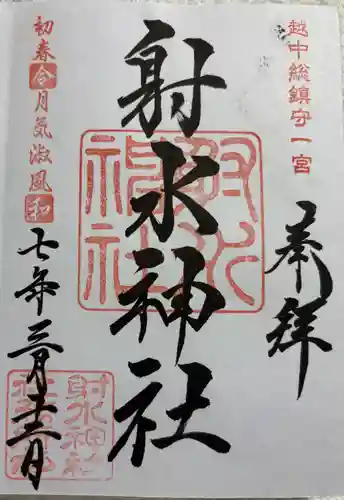 越中総鎮守一宮
奉拝
射水神社
射水神社
初春令月気淑風和
七年三月十三日
射水神社